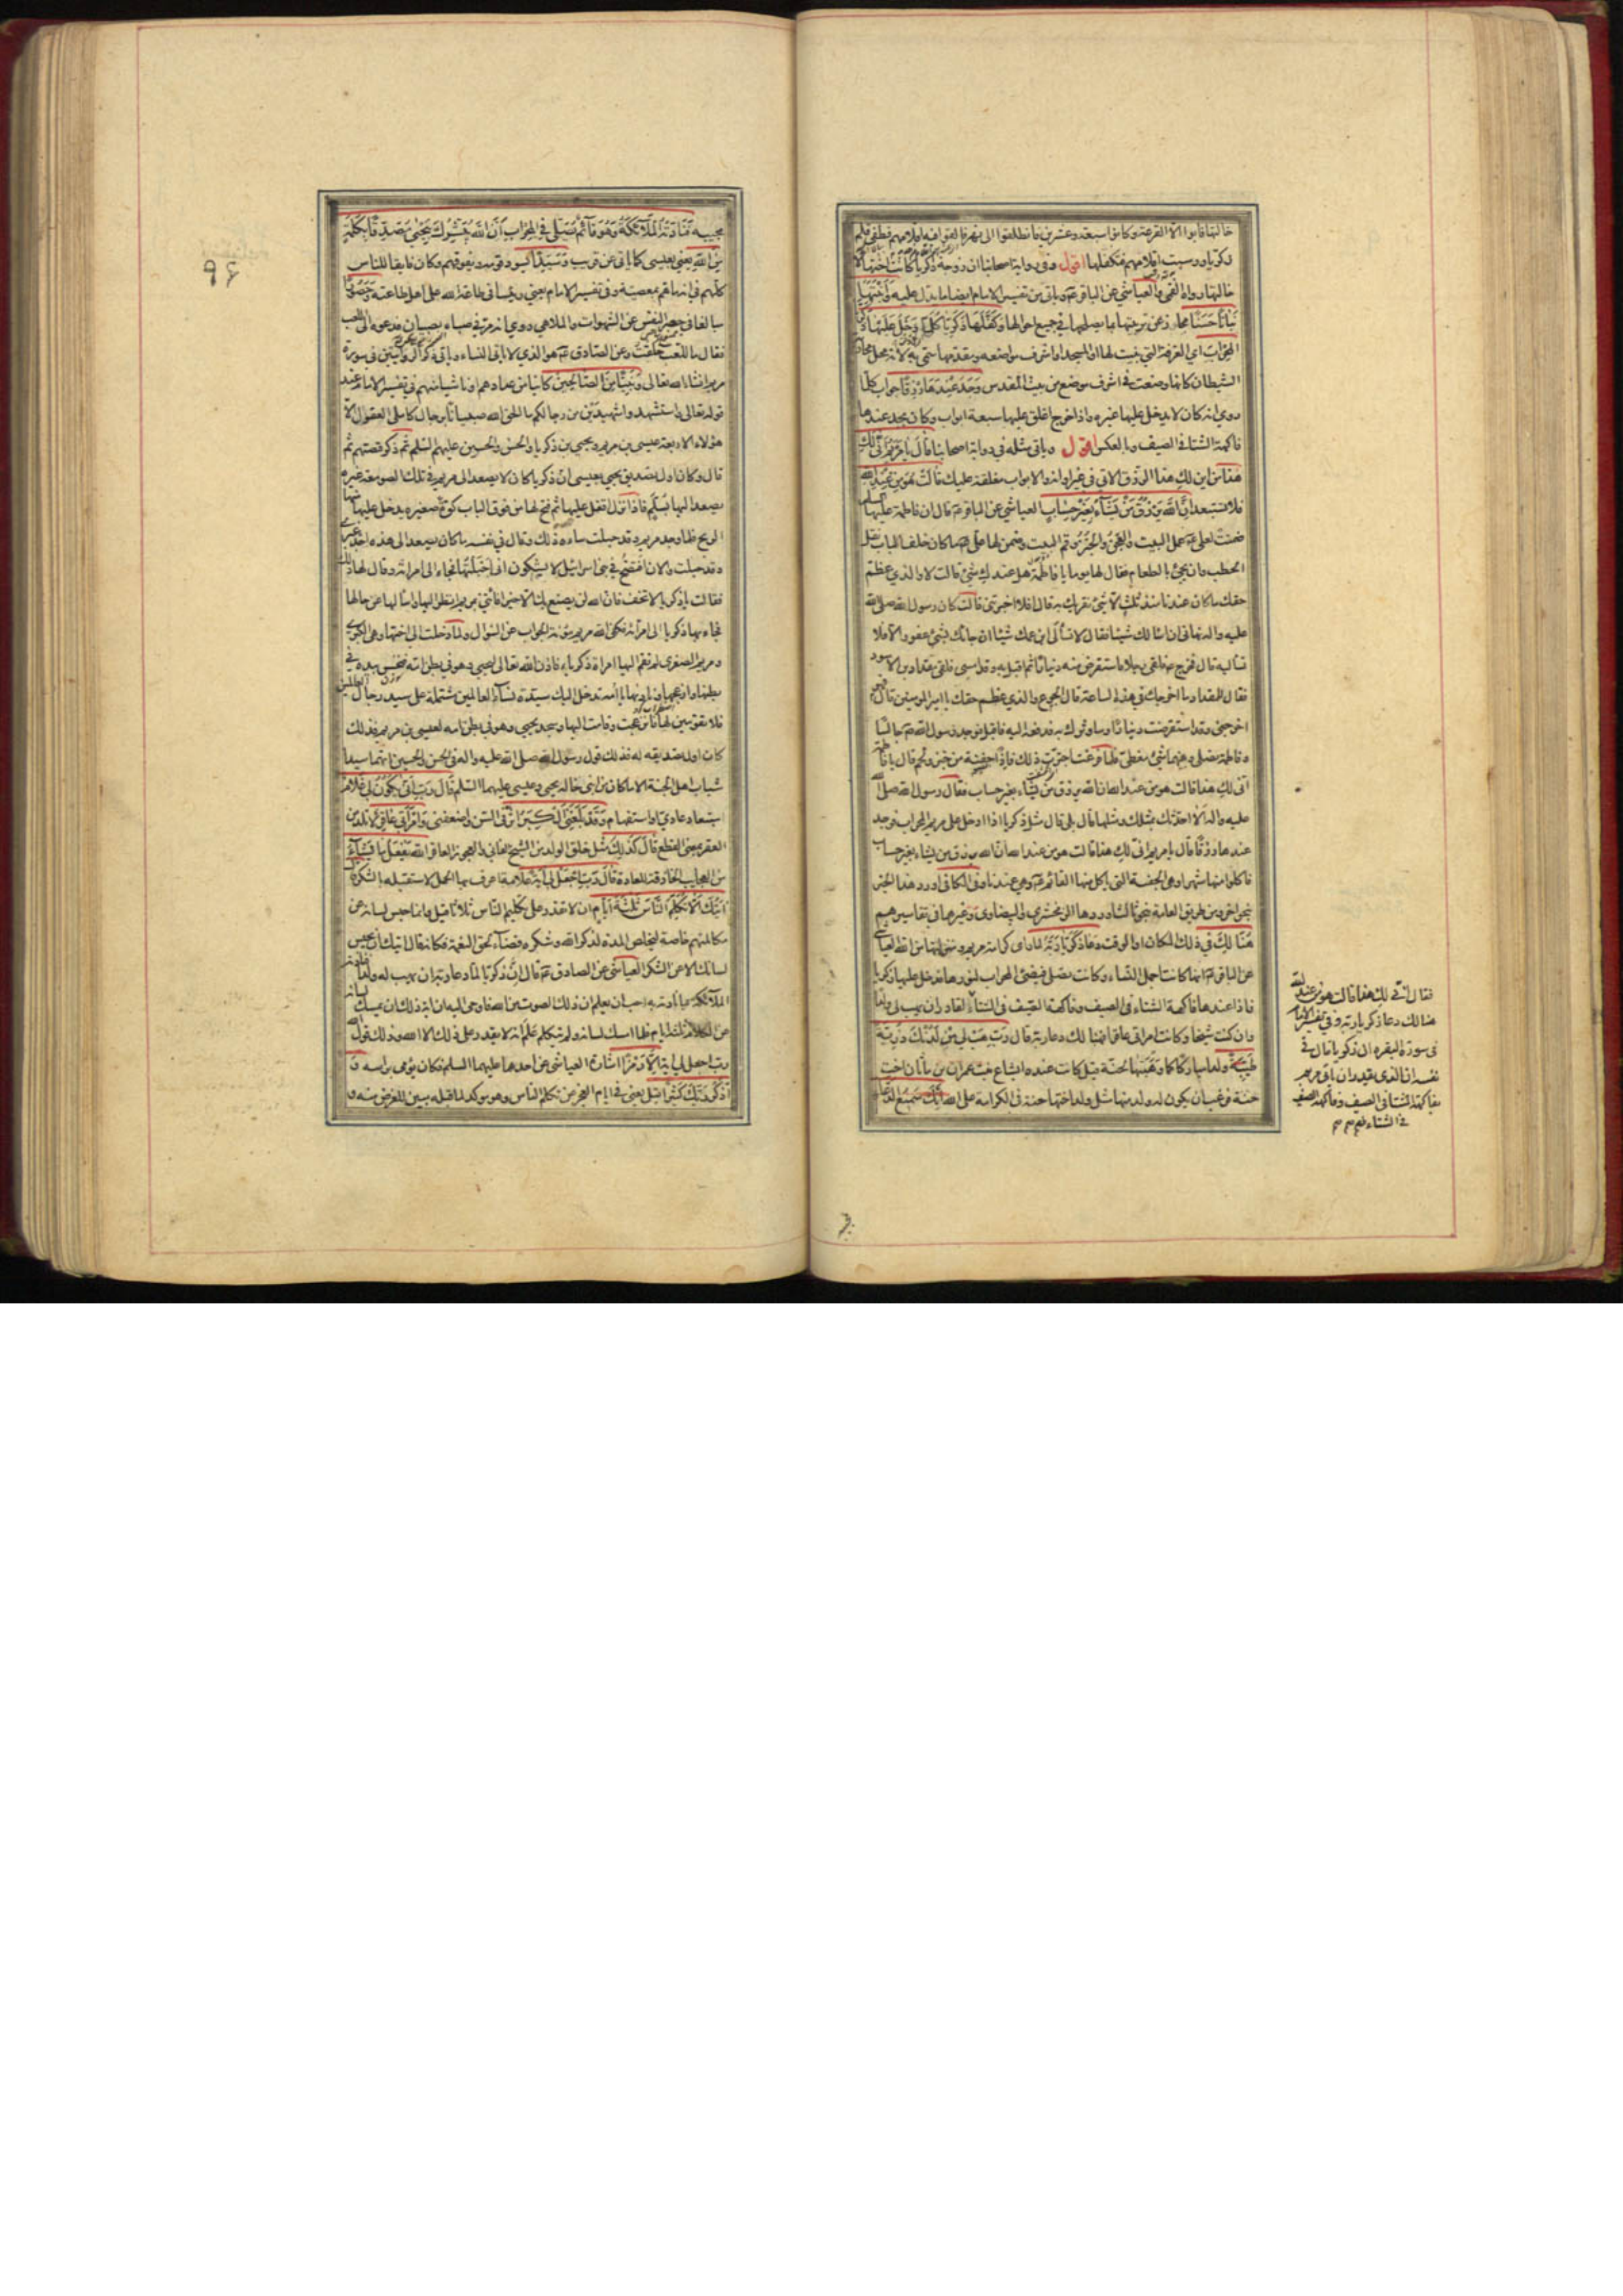 خالتها فابوا الا القرعة وكانوا سبعة وعشرين فانطلقوا الى نهر فالقوا فيه اقلامهم فطفى قلم
زكريا ورسبت اقلامهم فتكفلها اقول وفي رواية اصحابنا ان زوجة زكريا كانت اختها لا
خالتها رواه القمي والعياشي عن الباقر ع وياتي من تفسير الامام ايضا ما يدل عليه وَاَنْبَتَهَا
نَبَاتًا حَسَنًا مجاز عن تربيتها بما يصلحها في جميع احوالها وَكَفَّلَهَا زَكَرِيَّا كُلَّمَا دَخَلَ عَلَيْهَا زَكَرِيَّا
المِحْرَابَ اي الغرفة التي بنيت لها او المسجد او اشرف مواضعه ومقدمها سمي به لانه محل محاربة
الشيطان كانها وضعت في اشرف موضع من بيت المقدس وَجَدَ عِنْدَهَا رِزْقًا جواب كلما
روي انه كان لا يدخل عليها غيره واذا خرج اغلق عليها سبعة ابواب وكان يجد عندها
فاكهة الشتاء في الصيف وبالعكس اقول وياتي مثله في رواية اصحابنا قَالَ يَا مَرْيَمُ اَنّى لَكِ
هذا من اين لك هذا الرزق الاتي في غير اوانه والابواب مغلقة عليك قَالَتْ هُوَ مِنْ عِنْدِ اللهِ
فلا تستبعد اِنَّ اللهَ يَرْزُقُ مَنْ يَشَآءُ بِغَيْرِ حِسَابٍ العياشي عن الباقر ع قال ان فاطمة عليها السلم
ضمنت لعلي ع عمل البيت والعجن والخبز وقم البيت وضمن لها علي ع ما كان خلف الباب نقل
الحطب وان يجئ بالطعام فقال لها يوما يا فاطمة هل عندك شئ قالت لا والذي عظم
حقك ما كان عندنا منذ ثلث الا شئ نقريك به قال افلا اخبرتني قالت كان رسول الله صلى الله
عليه واله نهاني ان اسالك شيئا فقال لا تسألي ابن عمك شيئا ان جاءك بشئ عفو والا فلا
تساليه قال فخرج ع فلقي رجلا فاستقرض منه دينارا ثم اقبل به وقد امسى فلقي مقداد بن الاسود
فقال للمقداد ما اخرجك في هذه الساعة قال الجوع والذي عظم حقك يا امير المؤمنين قال فهو
اخرجني وقد استقرضت دينارا وساوثرك به فدفعه اليه فاقبل فوجد رسول الله ص جالسا
وفاطمة تصلي وبينهما شئ مغطى فلما فرغت اجترت ذلك فاذا جفنة من خبز ولحم قال يا فاطمة
انى لك هذا قالت هو من عند الله ان الله يرزق من يشاء بغير حساب فقال رسول الله صلى الله
عليه واله الا احدثك بمثلك ومثلها قال بلى قال مثل زكريا اذا دخل على مريم المحراب فوجد
عندها رزقا قال يا مريم انى لك هذا قالت هو من عند الله ان الله يرزق من يشاء بغير حساب
فاكلوا منها شهرا وهي الجفنة التي ياكل منها القائم ع وهي عندنا وفي الكافي اورد هذا الخبر
بنحو اخر ومن طريق العامة نحو ثالث اوردها الزمخشري والبيضاوي وغيرهما في تفاسيرهم
هُنَالِكَ في ذلك المكان او الوقت دَعَا زَكَرِيَّا رَبَّهُ لما راى كرامة مريم ومنزلتها من الله العياشي
عن الباقر ع انها كانت اجمل النساء وكانت تصلي فيضئ المحراب لنورها فدخل عليها زكريا
فاذا عندها فاكهة الشتاء في الصيف وفاكهة الصيف في الشتاء
وان كنت شيخا وكانت امراتي عاقرا هنالك دعا ربه قال رَبِّ هَبْ لِي مِنْ لَدُنْكَ ذُرِّيَّةً
طَيِّبَةً ولدا مباركا كما وهبتها لحنة قيل كانت عنده ايشاع بنت عمران بن ماثان اخت
حنة فرغب ان يكون له ولد منها مثل ولد اختها حنة في الكرامة على الله اِنَّكَ سَمِيعُ الدُّعَاءِ
فقال انى لك هذا قالت هو من عند الله
هنالك دعا زكريا ربه وفي تفسير الامام
في سورة البقره ان زكريا قال في
نفسه ان الذي يقدر ان ياتي مريم
بفاكهة الشتا في الصيف وفاكهة الصيف
في الشتاء
٩٤
مجيبه فَنَادَتْهُ الْمَلَآئِكَةُ وَهُوَ قَآئِمٌ يُصَلِّي فِي المِحْرَابِ اَنَّ اللهَ يُبَشِّرُكَ بِيَحْيى مُصَدِّقًا بِكَلِمَةٍ
مِنَ اللهِ يعني بعيسى كما ياتي عن قريب وَسَيِّدًا يسود قومه ويفوقهم وكان فايقا للناس
كلهم في انه ما هم بمعصية وفي تفسير الامام يعني رئيسا في طاعة الله على اهل طاعته وَحَصُورًا
مبالغا في حصر النفس عن الشهوات والملاهي روي انه مر في صباه بصبيان فدعوه الى اللعب
فقال ما للعب خلقت وعن الصادق ع هو الذي لا ياتي النساء
مريم انشاء الله تعالى وَنَبِيًّا مِنَ الصَّالِحِينَ كاينا من عدادهم او ناشيا منهم في تفسير الامام عند
قوله تعالى واستشهدوا شهيدين من رجالكم ما الحق الله صبيانا برجال كاملي العقول الا
هؤلاء الاربعة عيسى بن مريم ويحيى بن زكريا والحسن والحسين عليهم السلم ثم ذكر قصتهم ثم
قال وكان اول تصديق يحيى بعيسى ان زكريا كان لا يصعد الى مريم في تلك الصومعة غيره
يصعد اليها بسلم فاذا نزل اقفل عليها ثم فتح لها من فوق الباب كوة صغيرة يدخل عليها منها
الريح فلما وجد مريم وقد حبلت ساءه ذلك وقال في نفسه ما كان يصعد الى هذه احد غيري
وقد حبلت والان افتضح في بني اسرائيل لا يشكون اني احبلتها فجاء الى امراته وقال لها ذلك
فقالت يا زكريا لا تخف فان الله لن يصنع بك الا خيرا فأتني بمريم انظر اليها واسالها عن حالها
فجاء بها زكريا الى امراته فكفى الله مريم مؤنة الجواب عن السؤال ولما دخلت الى اختها وهي الكبرى
ومريم الصغرى لم تقم اليها امراة زكريا فاذن الله تعالى ليحيى وهو في بطن امه فنخس بيده في
بطنها وازعجها وناداها يا امه تدخل اليك سيدة نساء العالمين مشتملة على سيد رجال العالمين
فلا تقومين لها فانزعجت وقامت اليها وسجد يحيى وهو في بطن امه لعيسى بن مريم فذلك
كان اول تصديقه له فذلك قول رسول الله صلى الله عليه واله في الحسن والحسين انهما سيدا
شباب اهل الجنة الا ما كان من ابني خالة يحيى وعيسى عليهما السلم قَالَ رَبِّ اَنّى يَكُونُ لِي غُلَامٌ
استبعاد عادي او استفهام وَقَدْ بَلَغَنِيَ الْكِبَرُ اثر في السن واضعفني وَامْرَاَتِي عَاقِرٌ لا تلد من
العقر بمعنى القطع قَالَ كَذلِكَ مثل خلق الولد من الشيخ الفاني والعجوز العاقر اللهُ يَفْعَلُ مَا يَشَآءُ
من العجايب الخارقة للعادة قَالَ رَبِّ اجْعَلْ لِي ايَةً علامة اعرف بها الحمل لاستقبله بالشكر قَالَ
آيَتُكَ اَلَّا تُكَلِّمَ النَّاسَ ثَلثَةَ اَيَّامٍ ان لا تقدر على تكليم الناس ثلاثا قيل وانما حبس لسانه عن
مكالمتهم خاصة ليخلص المدة لذكر الله وشكره قضاء لحق النعمة فكانه قال ايتك ان يحبس
لسانك الا عن الشكر العياشي عن الصادق ع قال ان زكريا لما دعا ربه ان يهب له ولدا فنادته
الملآئكة بما نادته به احب ان يعلم ان ذلك الصوت من الله فاوحى اليه ان اية ذلك ان يمسك لسانه
عن الكلام ثلثة ايام فلما امسك لسانه ولم يتكلم علم انه لا يقدر على ذلك الا الله وذلك قول الله
رب اجعل لي اية اِلَّا رَمْزًا اشارة العياشي عن احدهما عليهما السلم فكان يؤمى براسه وَ
اذْكُرْ رَبَّكَ كَثِيرًا قيل يعني في ايام العجز عن تكلم الناس وهو مؤكد لما قبله مبين للغرض منه و